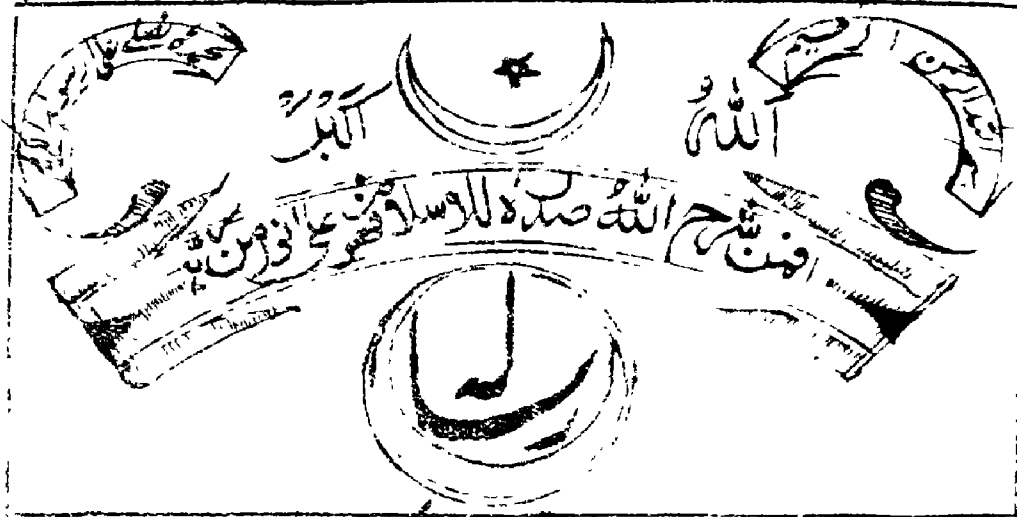 بسم الله الرحمن الرحيم
نحمده ونصلى على رسوله الكريم
اَللّٰهُ اَكْبَرُ
افمن شرح اللهُ صدرہ للاسلام فهو على نور من ربه